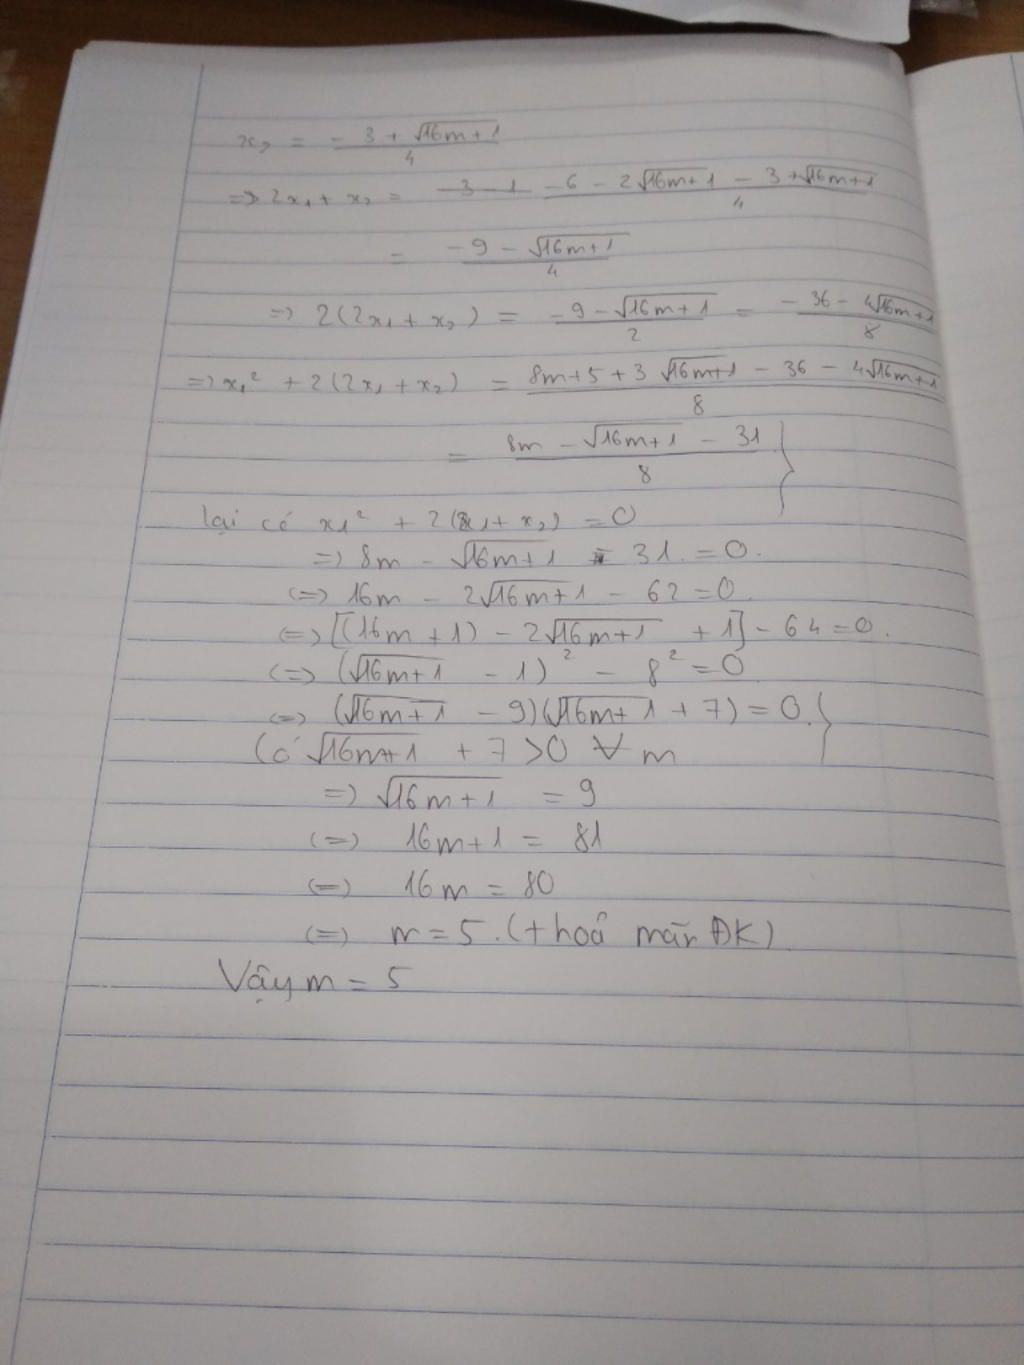 x₂ = \frac{-3 + \sqrt{16m+1}}{4}
=> 2x₁ + x₂ = \frac{-6 - 2\sqrt{16m+1} - 3 + \sqrt{16m+1}}{4}
= \frac{-9 - \sqrt{16m+1}}{4}
=> 2(2x₁ + x₂) = \frac{-9 - \sqrt{16m+1}}{2} = \frac{-36 - 4\sqrt{16m+1}}{8}
=> x₁² + 2(2x₁ + x₂) = \frac{8m+5+3\sqrt{16m+1} - 36 - 4\sqrt{16m+1}}{8}
= \frac{8m - \sqrt{16m+1} - 31}{8} }
lại có x₁² + 2(2x₁ + x₂) = 0
=> 8m - \sqrt{16m+1} - 31 = 0.
<=> 16m - 2\sqrt{16m+1} - 62 = 0
<=> [(16m+1) - 2\sqrt{16m+1} + 1] - 64 = 0.
<=> (\sqrt{16m+1} - 1)² - 8² = 0
<=> (\sqrt{16m+1} - 9)(\sqrt{16m+1} + 7) = 0. }
Có \sqrt{16m+1} + 7 > 0 ∀ m
=> \sqrt{16m+1} = 9
<=> 16m+1 = 81
<=> 16m = 80
<=> m = 5. (thoả mãn ĐK)
Vậy m = 5